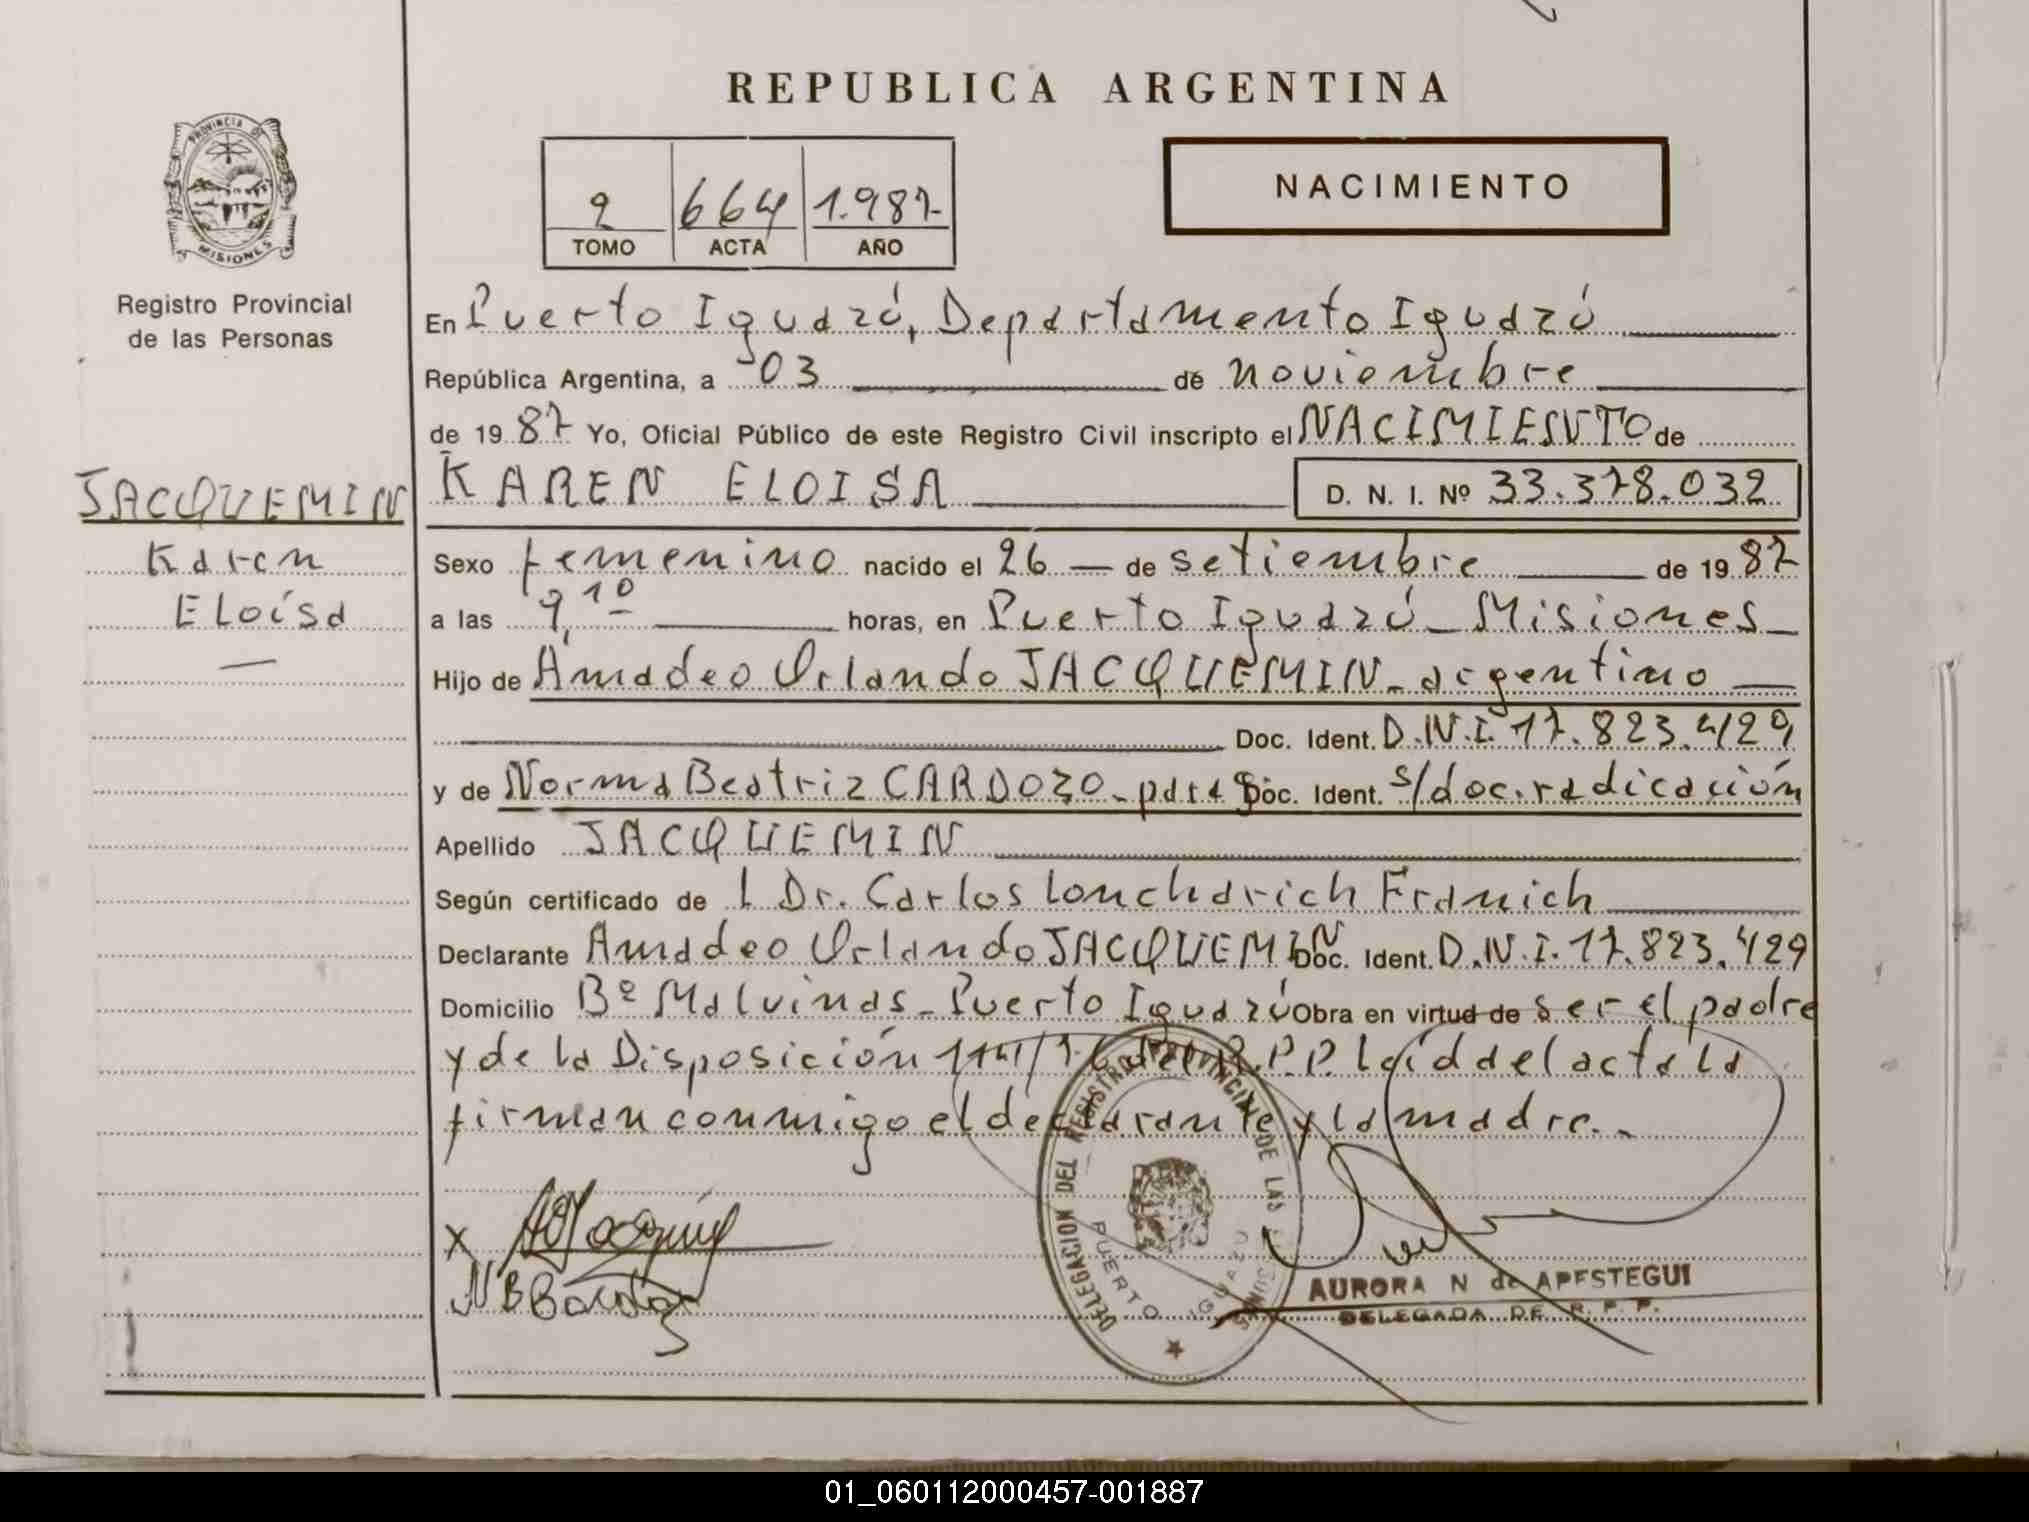 REPUBLICA ARGENTINA
PROVINCIA DE
MISIONES
Registro Provincial
de las Personas
2 664 1.987-
TOMO ACTA AÑO
NACIMIENTO
En Puerto Iguazú, Departamento Iguazú
República Argentina, a 03 de noviembre
de 1987 Yo, Oficial Público de este Registro Civil inscripto el NACIMIENTO de
JACQUEMIN
Karen
Eloísa
KAREN ELOISA D. N. I. Nº 33.378.032
Sexo femenino nacido el 26 — de setiembre de 1987
a las 9,10 horas, en Puerto Iguazú - Misiones -
Hijo de Amadeo Orlando JACQUEMIN - argentino
Doc. Ident. D.N.I. 17.823.429
y de Norma Beatriz CARDOZO - parag Doc. Ident. s/doc. radicación
Apellido JACQUEMIN
Según certificado de l Dr. Carlos Loncharich Franich
Declarante Amadeo Orlando JACQUEMIN Doc. Ident. D.N.I. 17.823.429
Domicilio Bº Malvinas - Puerto Iguazú Obra en virtud de ser el padre
y de la Disposición del R.P.P. Leída el acta la
firman conmigo el declarante y la madre.-
X
DELEGACION DEL REGISTRO PROVINCIAL DE LAS
PUERTO IGUAZU
MISIONES
AURORA N de APESTEGUI
DELEGADA DE R. P. P.
01_060112000457-001887